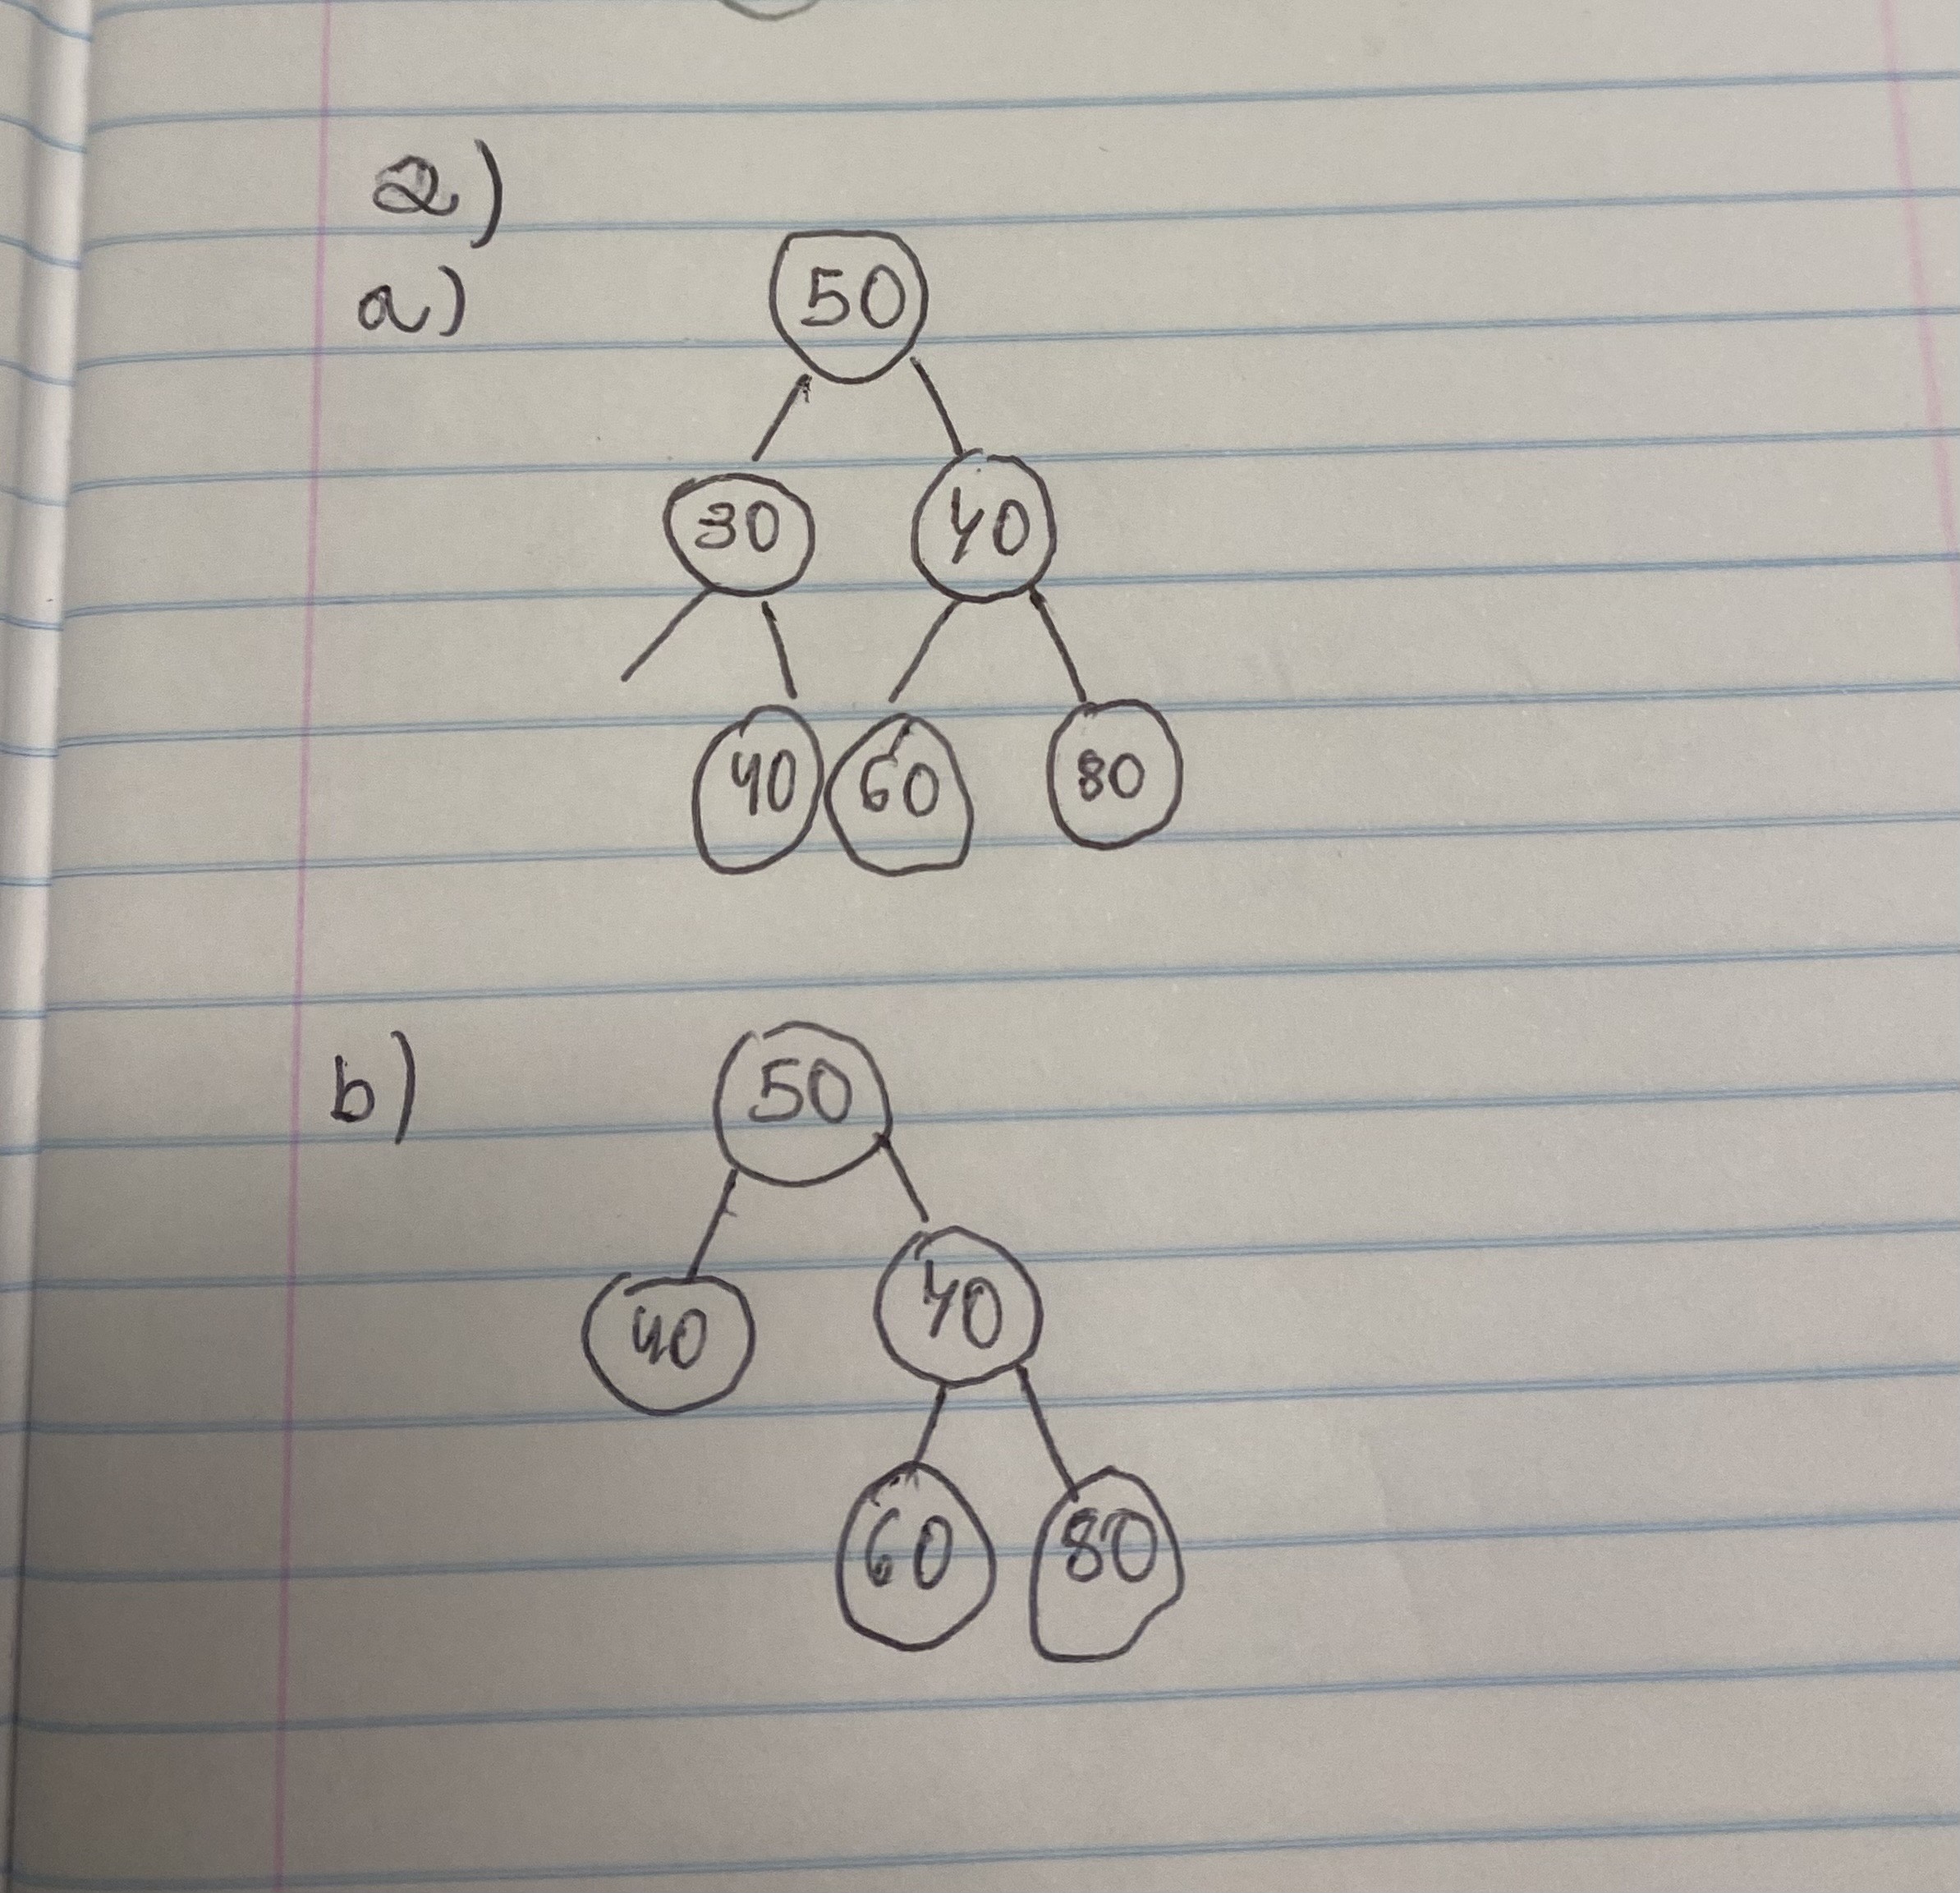 2)
a)
50
30 40
40 60 80
b)
50
40 40
60 80